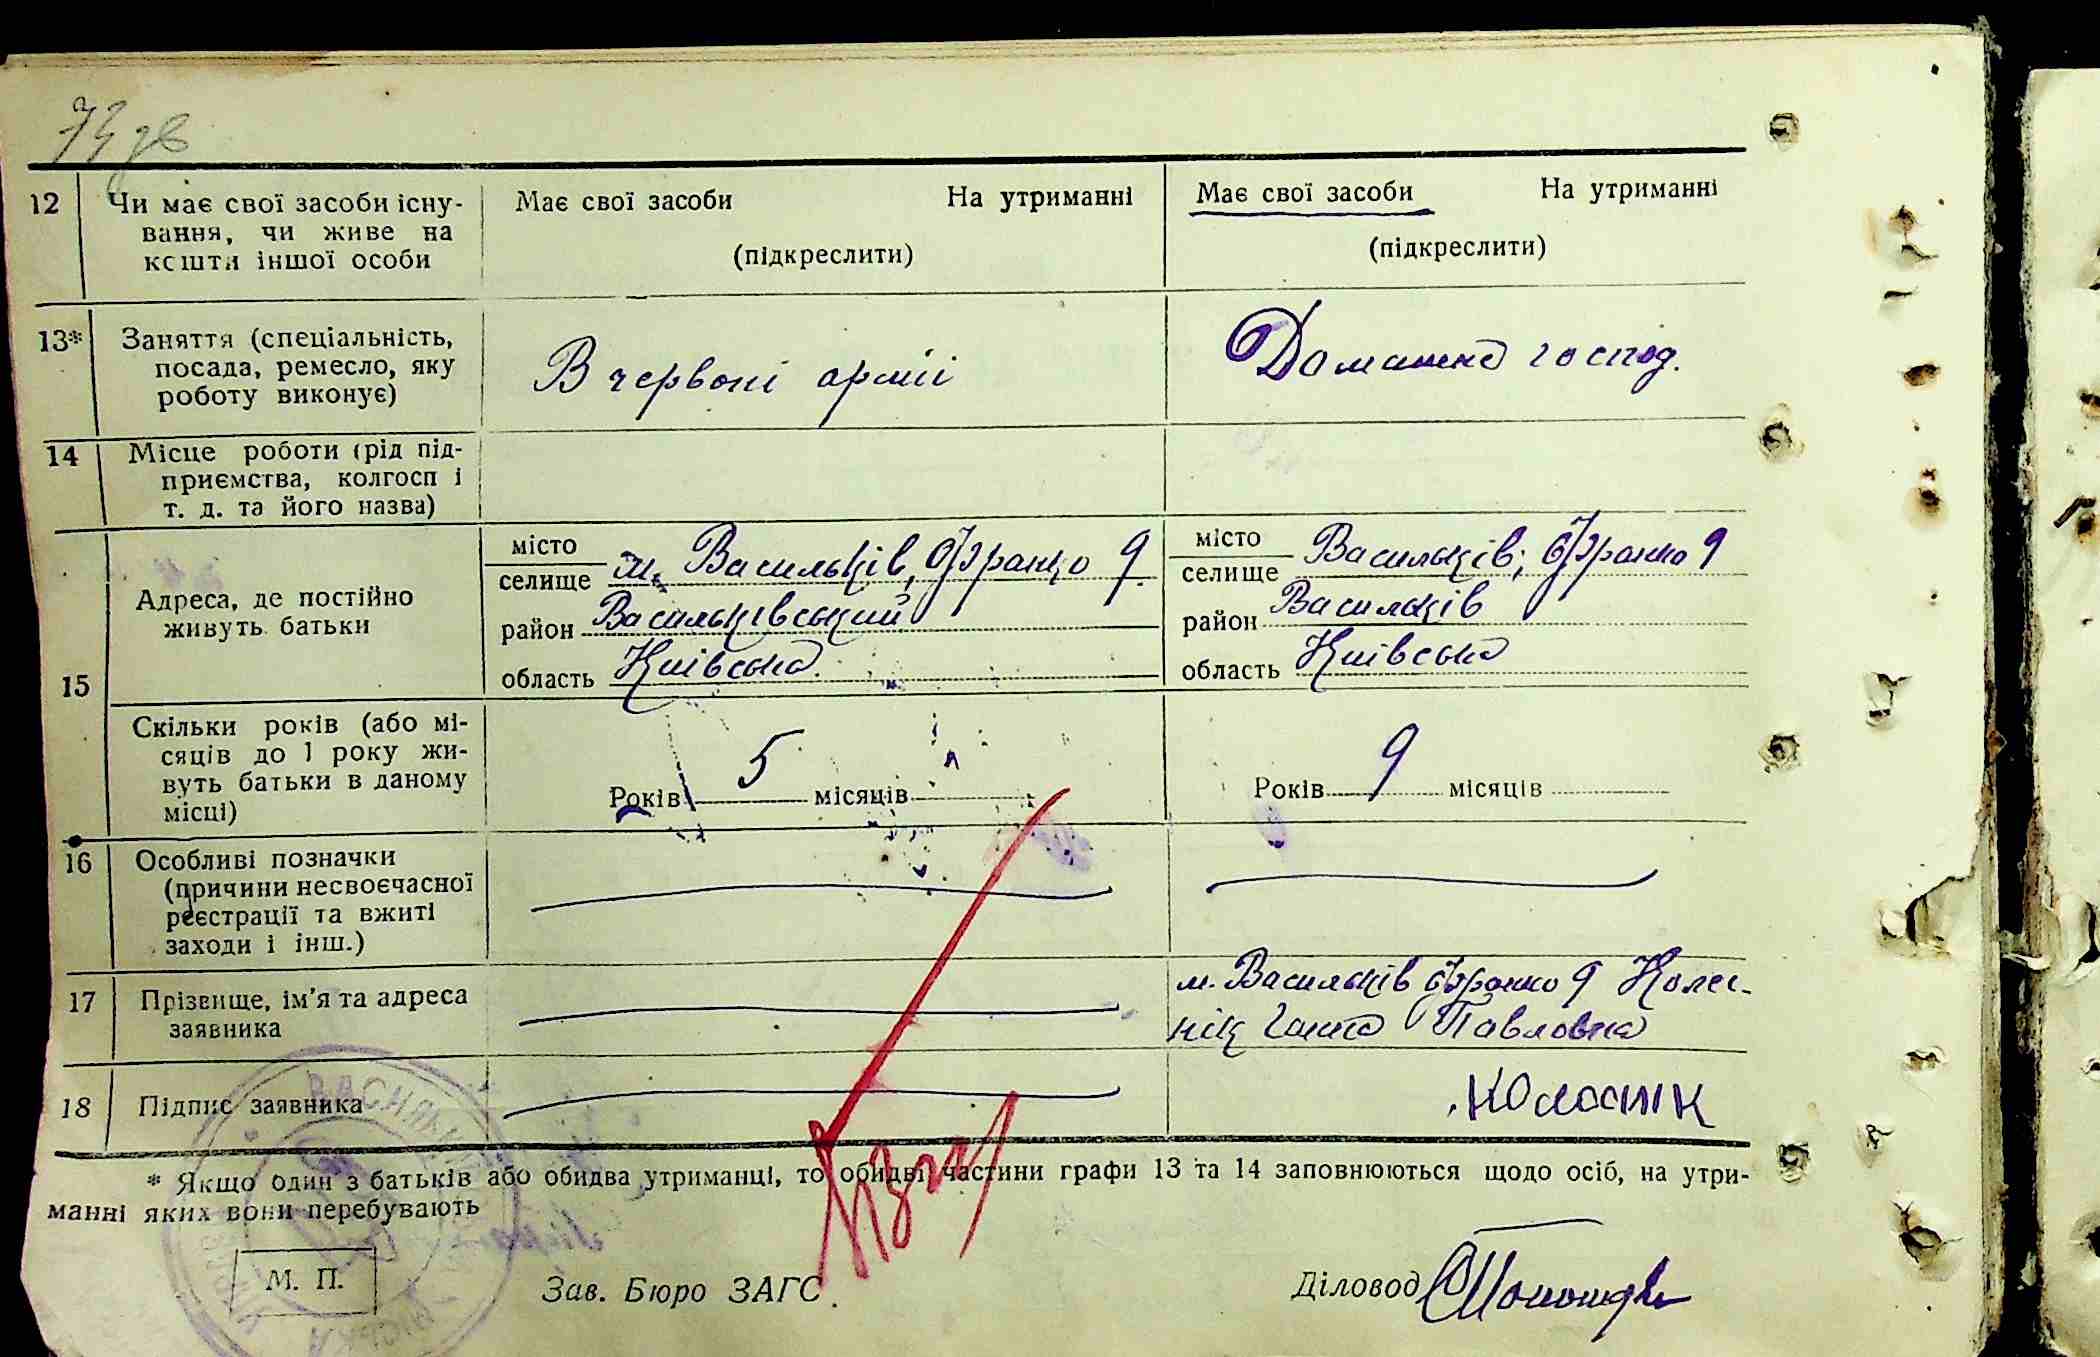 12 Чи має свої засоби існу-
вання, чи живе на
кошти іншої особи
Має свої засоби На утриманні
(підкреслити)
Має свої засоби На утриманні
(підкреслити)
13* Заняття (спеціальність,
посада, ремесло, яку
роботу виконує)
В червоні армії
Домашнє господ.
14 Місце роботи (рід під-
приємства, колгосп і
т. д. та його назва)
15
Адреса, де постійно
живуть батьки
місто
селище м. Васильків, Франко 9
район Васильківський
область Київська
місто
селище Васильків, Франко 9
район Васильків
область Київська
Скільки років (або мі-
сяців до 1 року жи-
вуть батьки в даному
місці)
Років 5 місяців
Років 9 місяців
16 Особливі позначки
(причини несвоєчасної
реєстрації та вжиті
заходи і інш.)
17 Прізвище, ім'я та адреса
заявника
м. Васильків Франко 9 Колес-
нік Ганна Павловна
18 Підпис заявника
Колеснік
* Якщо один з батьків або обидва утриманці, то обидві частини графи 13 та 14 заповнюються щодо осіб, на утри-
манні яких вони перебувають
М. П.
Зав. Бюро ЗАГС
Діловод